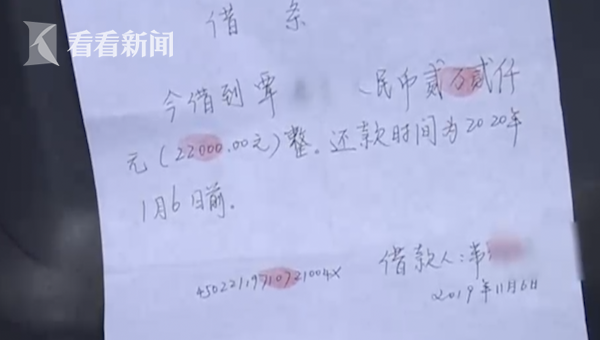 看看新闻
借条
今借到覃 民币贰万贰仟
元(22000.00元)整。还款时间为2020年
1月6日前.
借款人:韦
45022119710721004X
2019年11月6日